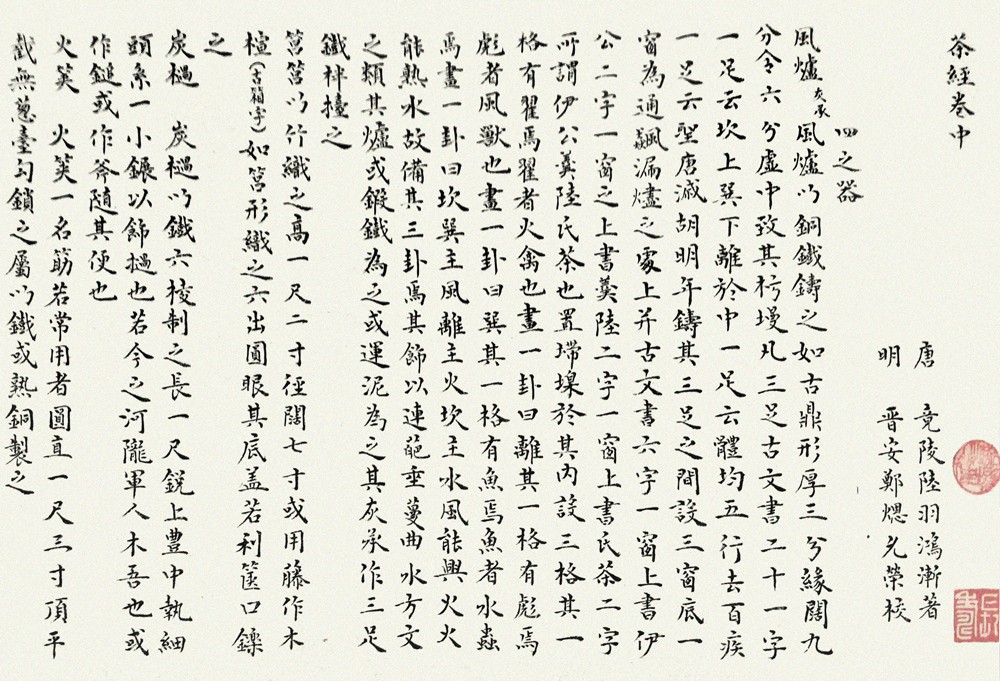 茶經卷中
唐 竟陵陸羽鴻漸著
明 晋安鄭熜允榮校
四之器
風爐灰承 風爐以銅鐵鑄之如古鼎形厚三分緣闊九
分令六分虛中致其杇墁凡三足古文書二十一字
一足云坎上巽下離於中一足云體均五行去百疾
一足云聖唐滅胡明年鑄其三足之間設三窗底一
窗為通飆漏燼之處上并古文書六字一窗上書伊
公二字一窗之上書羹陸二字一窗上書氏茶二字
所謂伊公羹陸氏茶也置墆㙞於其内設三格其一
格有翟焉翟者火禽也畫一卦曰離其一格有彪焉
彪者風獸也畫一卦曰巽其一格有魚焉魚者水蟲
焉畫一卦曰坎巽主風離主火坎主水風能興火火
能熟水故備其三卦焉其飾以連葩垂蔓曲水方文
之類其爐或鍛鐵為之或運泥為之其灰承作三足
鐵柈擡之
筥筥以竹織之高一尺二寸徑闊七寸或用藤作木
楦(古箱字)如筥形織之六出圓眼其底盖若利篋口鑠
之
炭檛 炭檛以鐵六稜制之長一尺銳上豊中執細
頭系一小𨰉以飾檛也若今之河隴軍人木吾也或
作鎚或作斧隨其便也
火筴 火筴一名筯若常用者圓直一尺三寸頂平
截無葱臺勾鎖之屬以鐵或熟銅製之